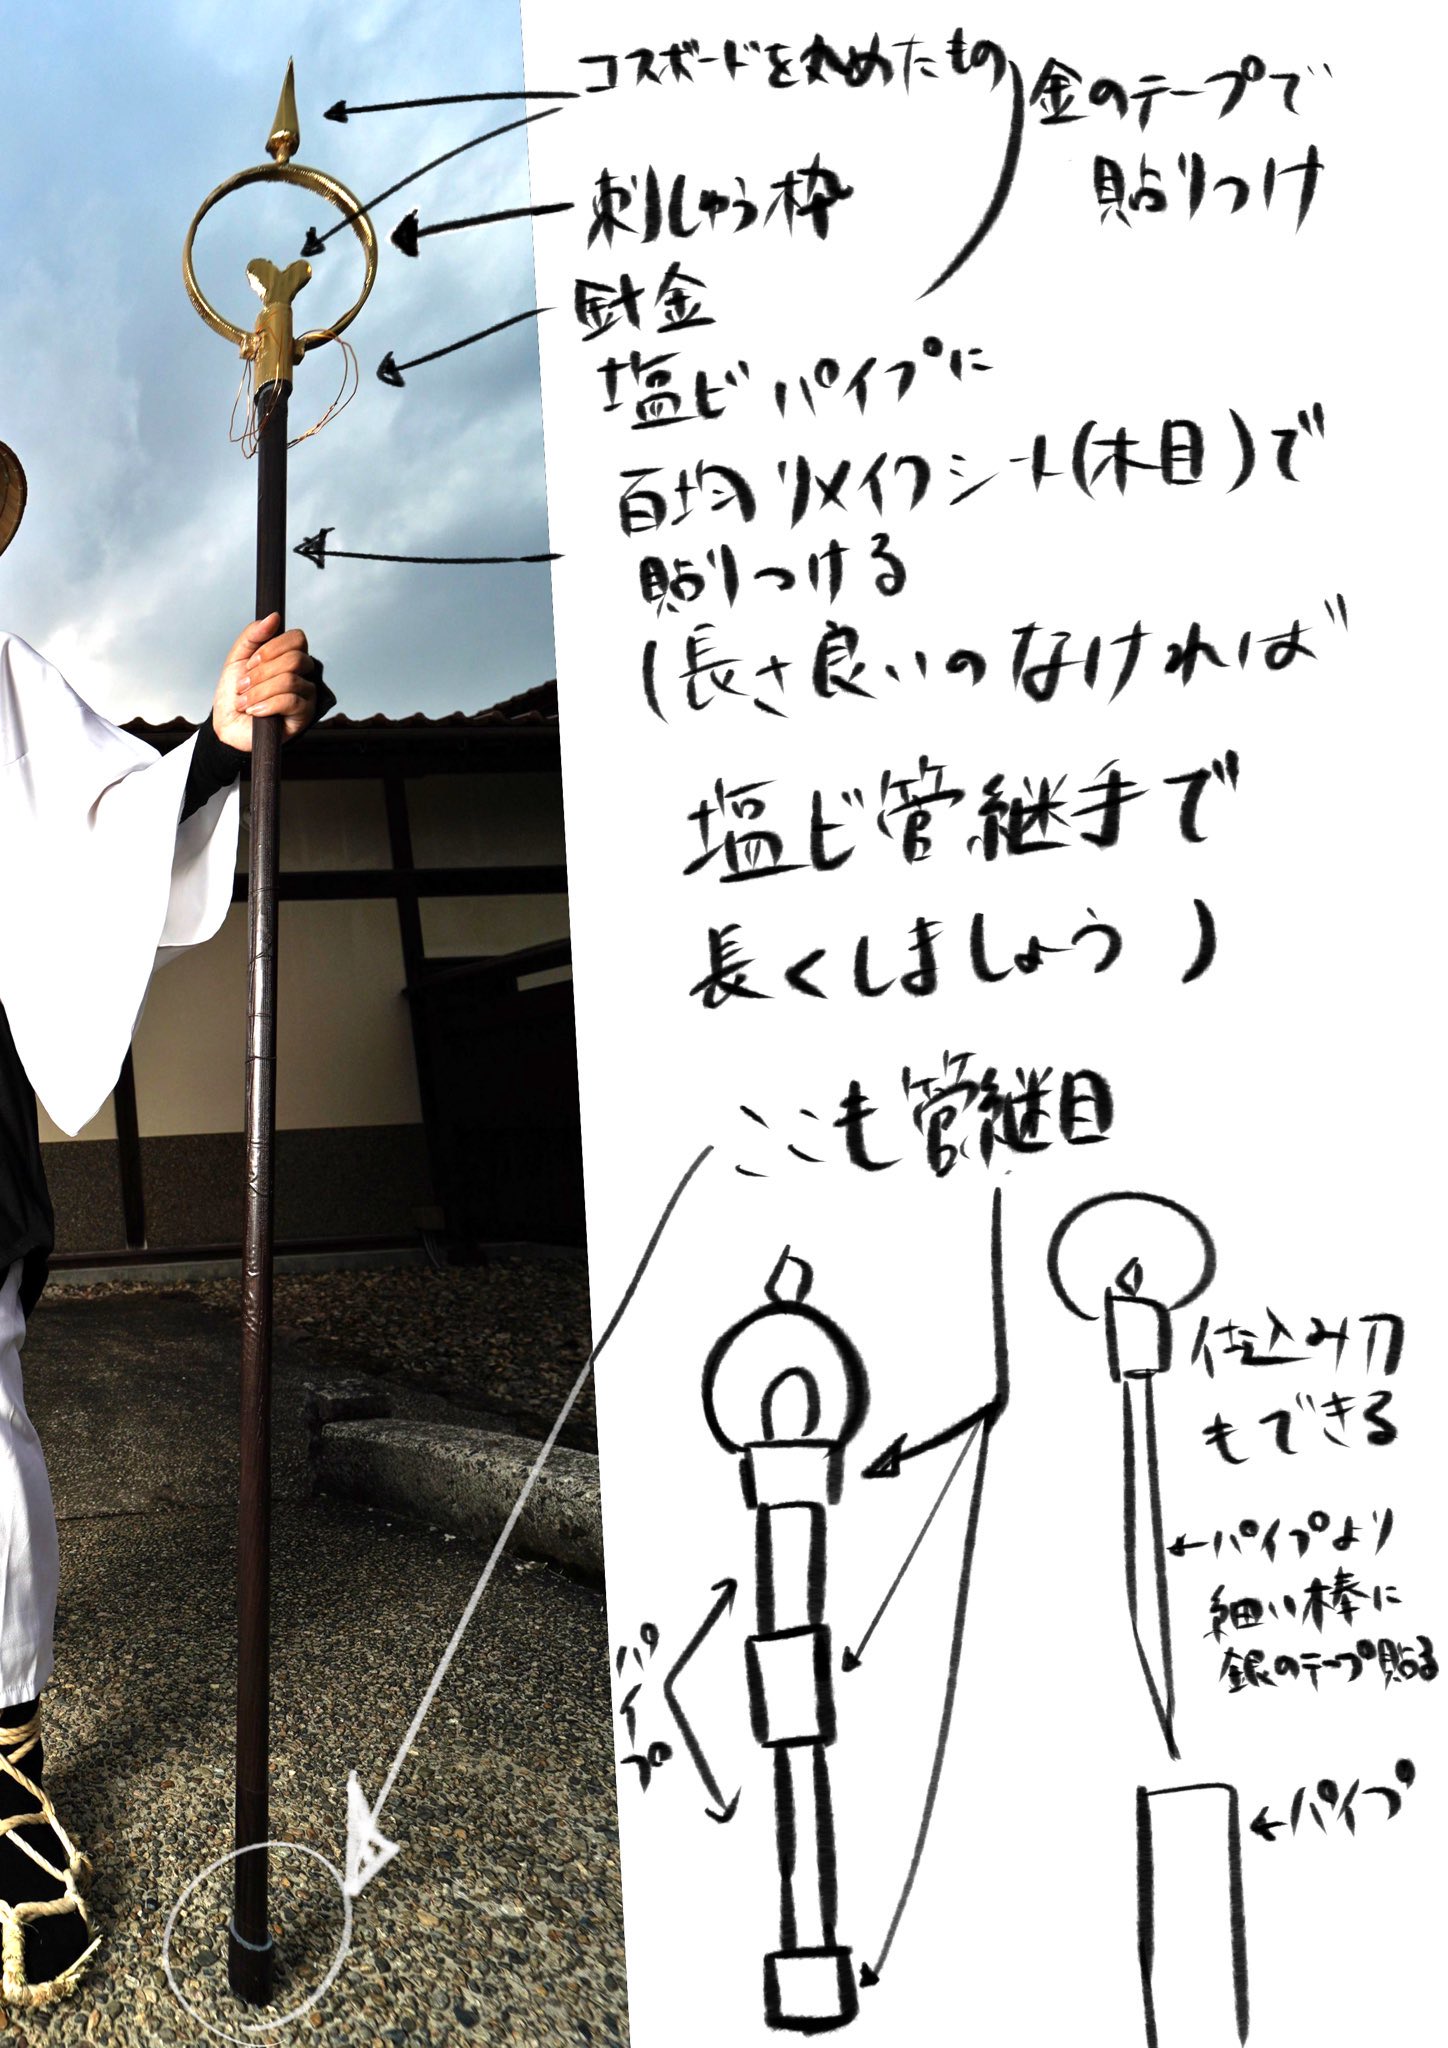 コスボードを丸めたもの
金のテープで
貼りつけ
刺しゅう枠
針金
塩ビパイプに
百均リメイクシート(木目)で
貼りつける
(長さ良いのなければ
塩ビ管継手で
長くしましょう)
ここも管継目
仕込み刀
もできる
←パイプより
細い棒に
銀のテープ貼る
パイプ
←パイプ